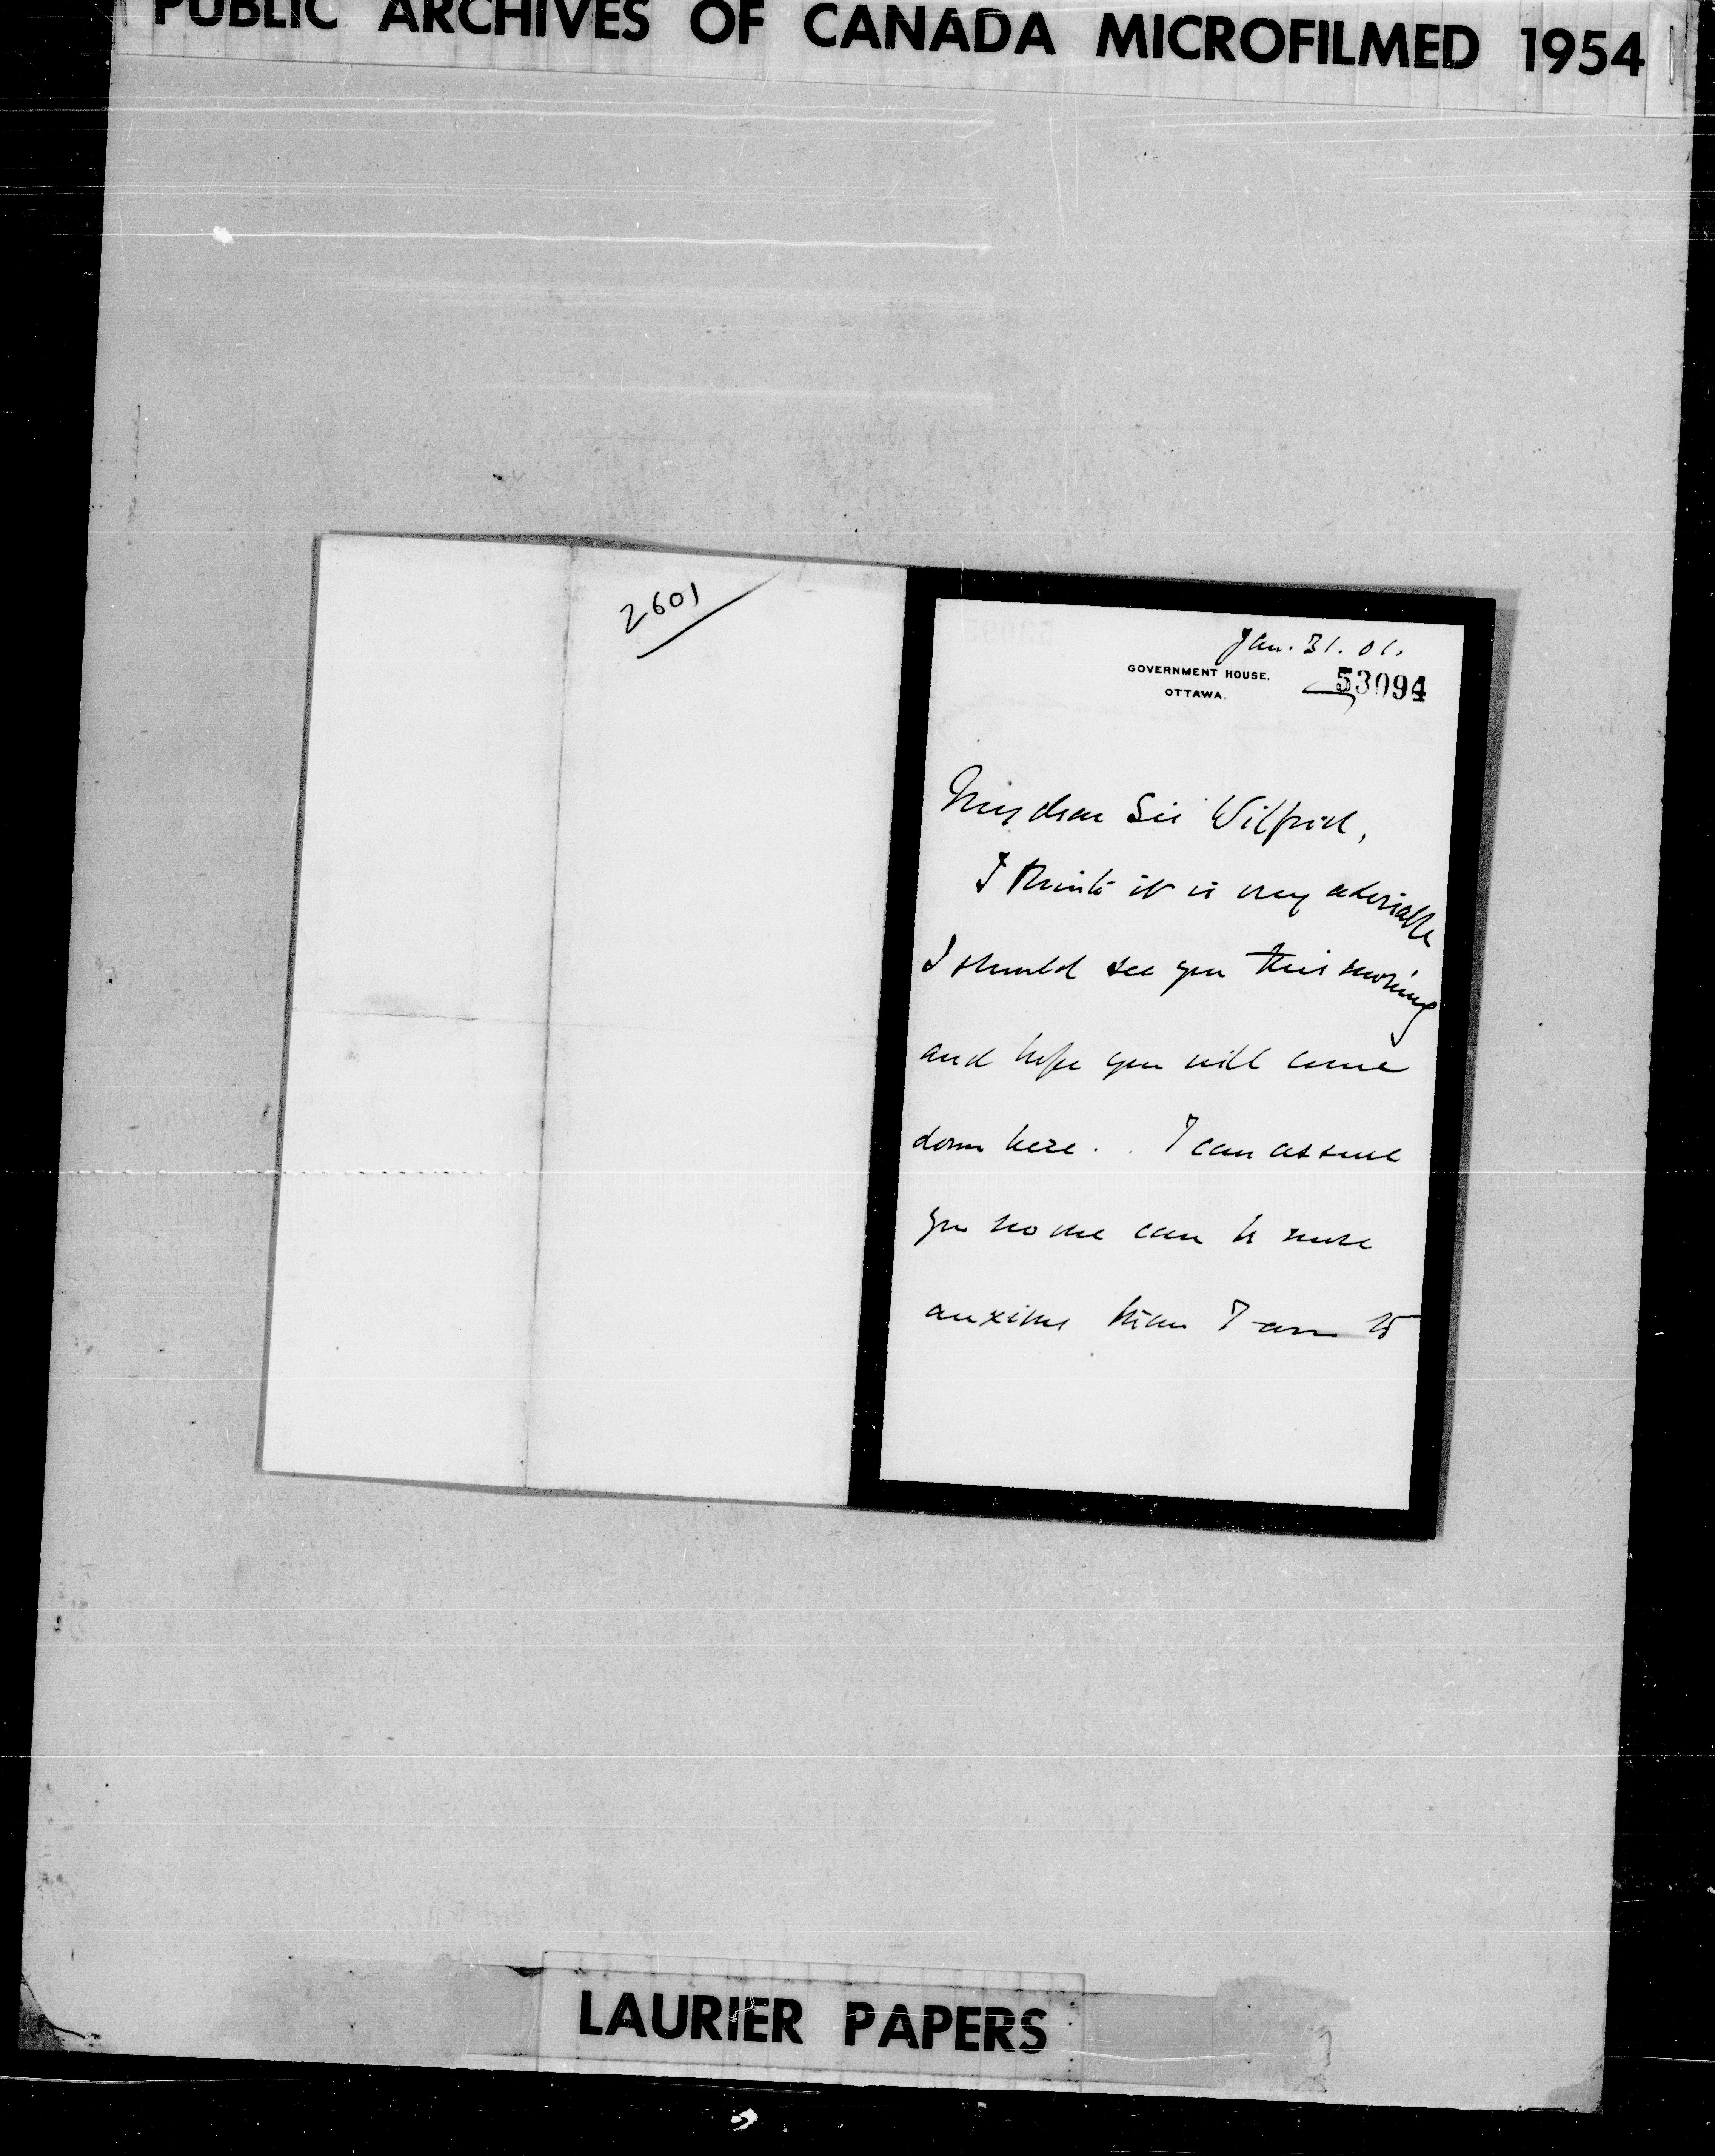 PUBLIC ARCHIVES OF CANADA MICROFILMED 1954
2601
Jan. 31. 01.
GOVERNMENT HOUSE.
OTTAWA.
53094
My dear Sir Wilfrid,
I think it is very advisable
I should see you this morning
and hope you will come
down here. I can assure
you no one can be more
anxious than I am to
LAURIER PAPERS